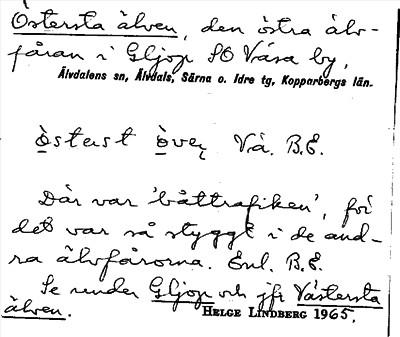 Östersta älven, den östra älv-
fåran i Gljop SO Våsa by,
Älvdalens sn, Älvdals, Särna o. Idre tg, Kopparbergs län.
òsterst òveņ Vå. B.E.
Där var 'båttrafiken', för
det var så styggt i de and-
ra älvfårorna. Enl. B.E.
Se under Gljop och jfr Västersta
älven.
HELGE LINDBERG 1965.